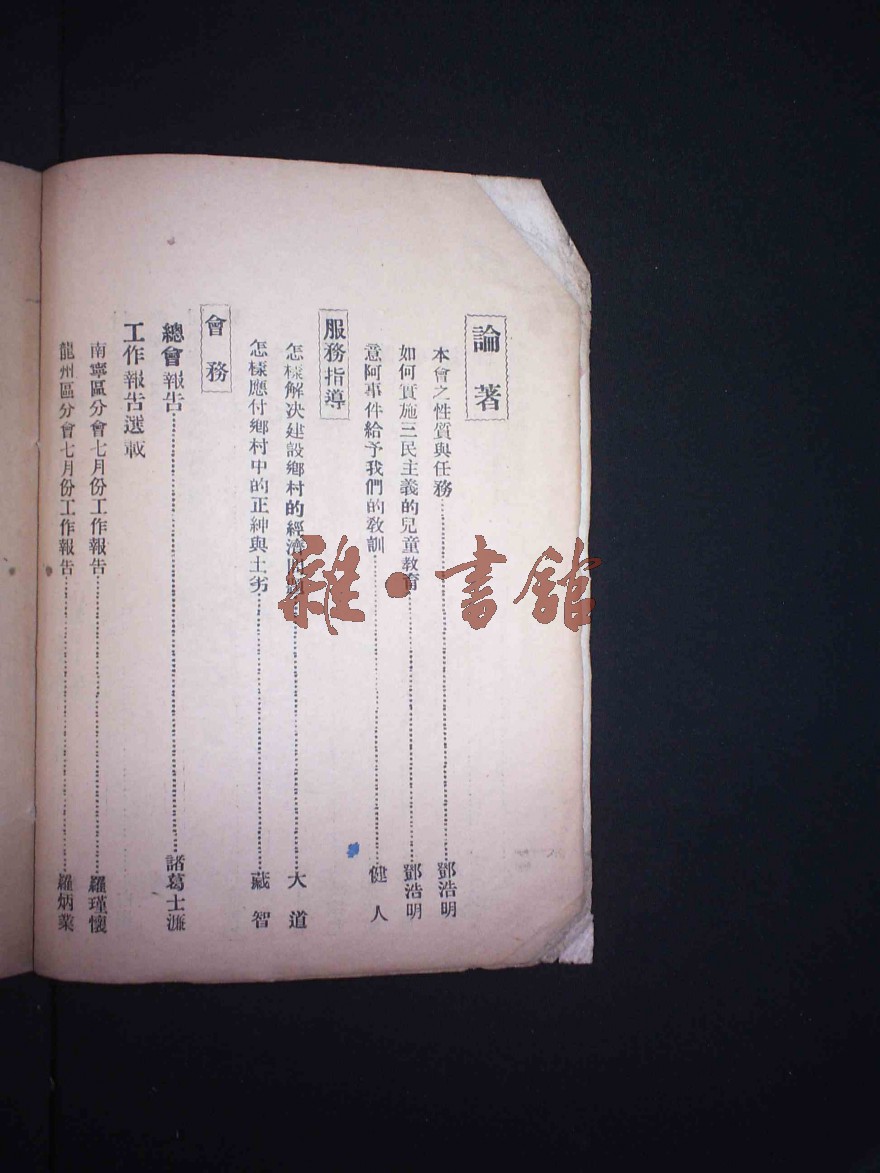 論著
本會之性質與任務……鄧浩明
如何實施三民主義的兒童教育……鄧浩明
意阿事件給予我們的教訓……健人
服務指導
怎樣解決建設鄉村的經濟……大道
怎樣應付鄉村中的正紳與土劣……藏智
會務
總會報告……諸葛士濂
工作報告選載
南寧區分會七月份工作報告……羅瑾懷
龍州區分會七月份工作報告……羅炳業
雜·書館